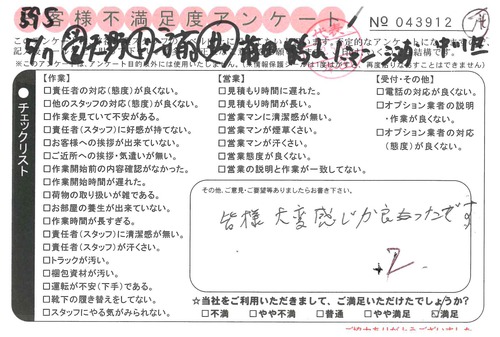 お客様不満足度アンケート
№ 043912
【作業】
□責任者の対応(態度)が良くない。
□他のスタッフの対応(態度)が良くない。
□作業を見ていて不安がある。
□責任者(スタッフ)に好感が持てない。
□お客様への挨拶が出来ていない。
□ご近所への挨拶・気遣いが無い。
□作業開始前の内容確認がなかった。
□作業開始時間が遅れた。
□荷物の取り扱いが雑である。
□お部屋の養生が出来ていない。
□作業時間が長すぎる。
□責任者(スタッフ)に清潔感が無い。
□責任者(スタッフ)が汗くさい。
□トラックが汚い。
□梱包資材が汚い。
□運転が不安(下手)である。
□靴下の履き替えをしてない。
□スタッフにやる気がみられない。
チェックリスト
【営業】
□見積もり時間に遅れた。
□見積もり時間が長い。
□営業マンに清潔感が無い。
□営業マンが煙草くさい。
□営業マンが汗くさい。
□営業態度が良くない。
□営業の説明と作業が一致してない。
【受付・その他】
□電話の対応が良くない。
□オプション業者の説明・作業が良くない。
□オプション業者の対応(態度)が良くない。
その他、ご意見・ご要望等ありましたらお書き下さい。
皆様 大変感じが良かったです
☆当社をご利用いただきまして、ご満足いただけたでしょうか?
□不満 □やや不満 □普通 □やや満足 ☑満足
ご協力ありがとうございました